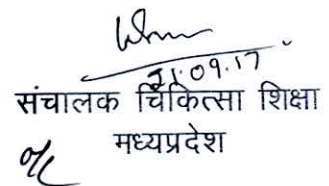 21.09.17
संचालक चिकित्सा शिक्षा
मध्यप्रदेश